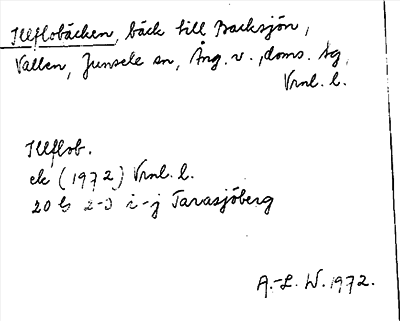 Illflobäcken, bäck till Backsjön,
Vallen, Junsele sn, Ång. v., doms. bg,
Vrnl. l.
Illflob.
ek (1972) Vrnl. l.
20 G 2-3 i-j Tarasjöberg
A.-L. W. 1972.